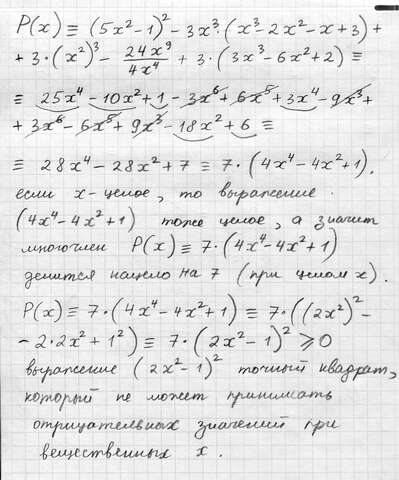 P(x) ≡ (5x² – 1)² – 3x³·(x³ – 2x² – x + 3) +
+ 3·(x²)³ – 24x⁹/4x⁴ + 3·(3x³ – 6x² + 2) ≡
≡ 25x⁴ – 10x² + 1 – 3x⁶ + 6x⁵ + 3x⁴ – 9x³ +
+ 3x⁶ – 6x⁵ + 9x³ – 18x² + 6 ≡
≡ 28x⁴ – 28x² + 7 ≡ 7·(4x⁴ – 4x² + 1).
если x – целое, то выражение
(4x⁴ – 4x² + 1) тоже целое, а значит
многочлен P(x) ≡ 7·(4x⁴ – 4x² + 1)
делится нацело на 7 (при целом x).
P(x) ≡ 7·(4x⁴ – 4x² + 1) ≡ 7·((2x²)² –
– 2·2x² + 1²) ≡ 7·(2x² – 1)² ⩾ 0
выражение (2x² – 1)² точный квадрат,
который не может принимать
отрицательных значений при
вещественных x.